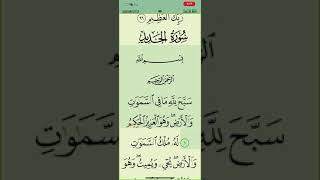 رَبِّكَ الْعَظِيمِ ٩٦
سُورَةُ الْحَدِيدِ
بِسْمِ اللَّهِ
الرَّحْمَٰنِ الرَّحِيمِ
سَبَّحَ لِلَّهِ مَا فِي السَّمَٰوَٰتِ
وَالْأَرْضِ ۖ وَهُوَ الْعَزِيزُ الْحَكِيمُ
١ لَهُ مُلْكُ السَّمَٰوَٰتِ
وَالْأَرْضِ ۖ يُحْيِي وَيُمِيتُ ۖ وَهُوَ